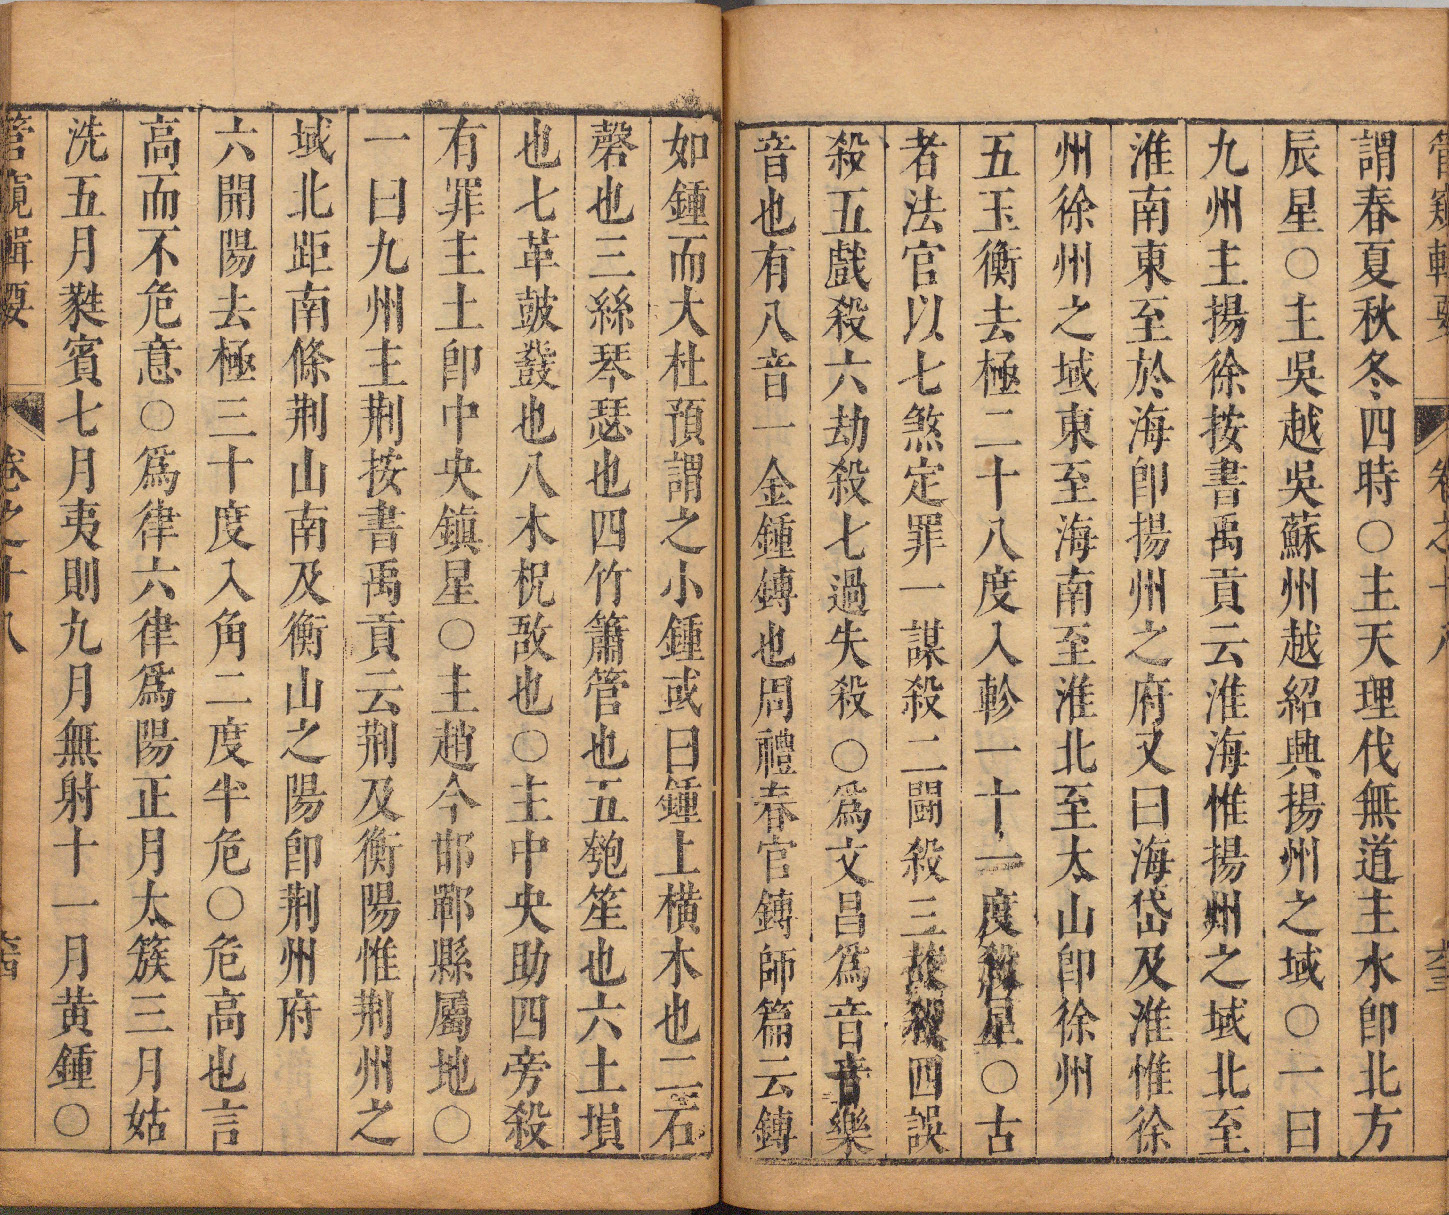 管窺輯要 卷之十八
謂春夏秋冬四時○主天理伐無道主水卽北方
辰星○主吳越吳蘇州越紹興揚州之域○一曰
九州主揚徐按書禹貢云淮海惟揚州之域北至
淮南東至於海卽揚州之府又曰海岱及淮惟徐
州徐州之域東至海南至淮北至太山卽徐州
五玉衡去極二十八度入軫一十一度殺星○古
者法官以七煞定罪一謀殺二鬪殺三故殺四誤
殺五戲殺六劫殺七過失殺○爲文昌爲音音樂
音也有八音一金鍾鎛也周禮春官鎛師篇云鎛
如鍾而大杜預謂之小鍾或曰鍾上橫木也二石
磬也三絲琴瑟也四竹簫管也五匏笙也六土塤
也七革鼓鼗也八木柷敔也○主中央助四旁殺
有罪主土卽中央鎮星○主趙今邯鄲縣屬地○
一曰九州主荆按書禹貢云荆及衡陽惟荆州之
域北距南條荆山南及衡山之陽卽荆州府
六開陽去極三十度入角二度半危○危高也言
高而不危意○爲律六律爲陽正月太簇三月姑
洗五月蕤賓七月夷則九月無射十一月黃鍾○
管窺輯要 卷之十八